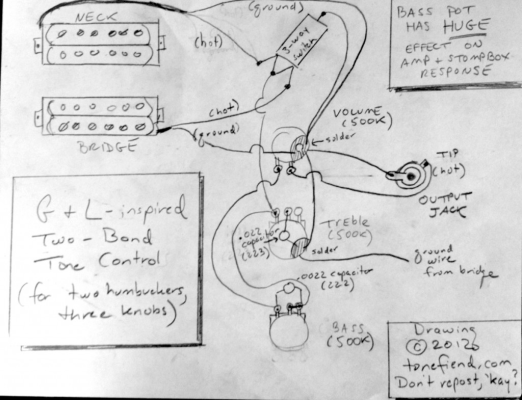 NECK
(ground)
BASS POT
HAS HUGE
EFFECT ON
AMP + STOMPBOX
RESPONSE
(hot)
3-way
switch
(hot)
(ground)
BRIDGE
VOLUME
(500K)
solder
TIP
(hot)
OUTPUT
JACK
G + L-inspired
Two-Band
Tone Control
(for two humbuckers,
three knobs)
.022
capacitor
(223)
Treble
(500K)
solder
ground
wire
from bridge
.0022 capacitor
(222)
BASS
(500K)
Drawing
© 2012
tonefiend.com
Don't repost, 'kay?